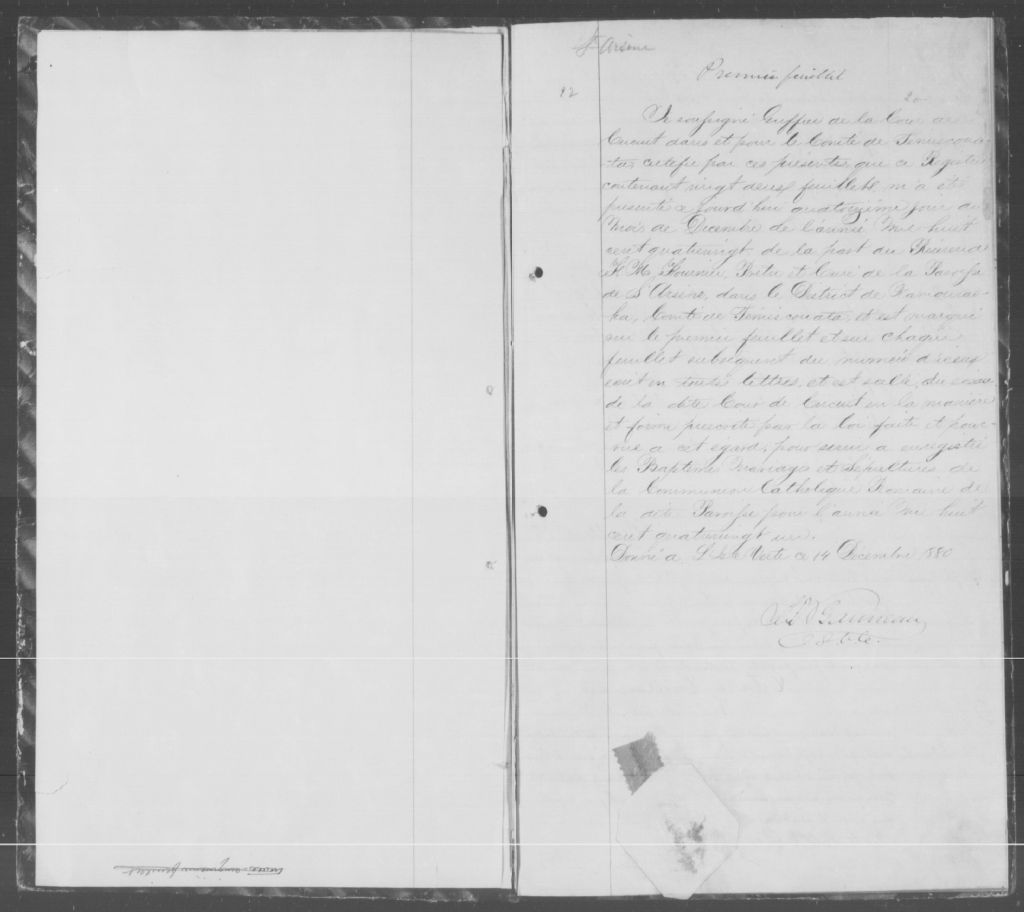 St Arsène
Premier feuillet
Je soussigné Greffier de la Cour de
Circuit dans et pour le Comté de Temiscoua-
-ta, certifie par ces présentes, que ce Registre
contenant vingt deux feuillets m'a été
présenté ce jourd'hui quatorzième jour du
Mois de Décembre de l'année Mil huit
cent quatrevingt de la part du Révérend
Fournier, Ptre et Curé de la Paroisse
de St Arsène, dans le District de Kamouras-
ka, Comté de Temiscouata, et est marqué
sur le premier feuillet et sur chaque
feuillet subséquent du numéro d'icelui
écrit en toutes lettres, et est scellé du sceau
de la dite Cour de Circuit en la manière
et forme prescrite par la loi faite et pour-
vue a cet égard, pour servir a enregistrer
les Baptêmes Mariages et Sépultures de
la Communion Catholique Romaine de
la dite Paroisse pour l'année Mil huit
cent quatrevingt un.
Donné a L'Isle Verte ce 14 Décembre 1880